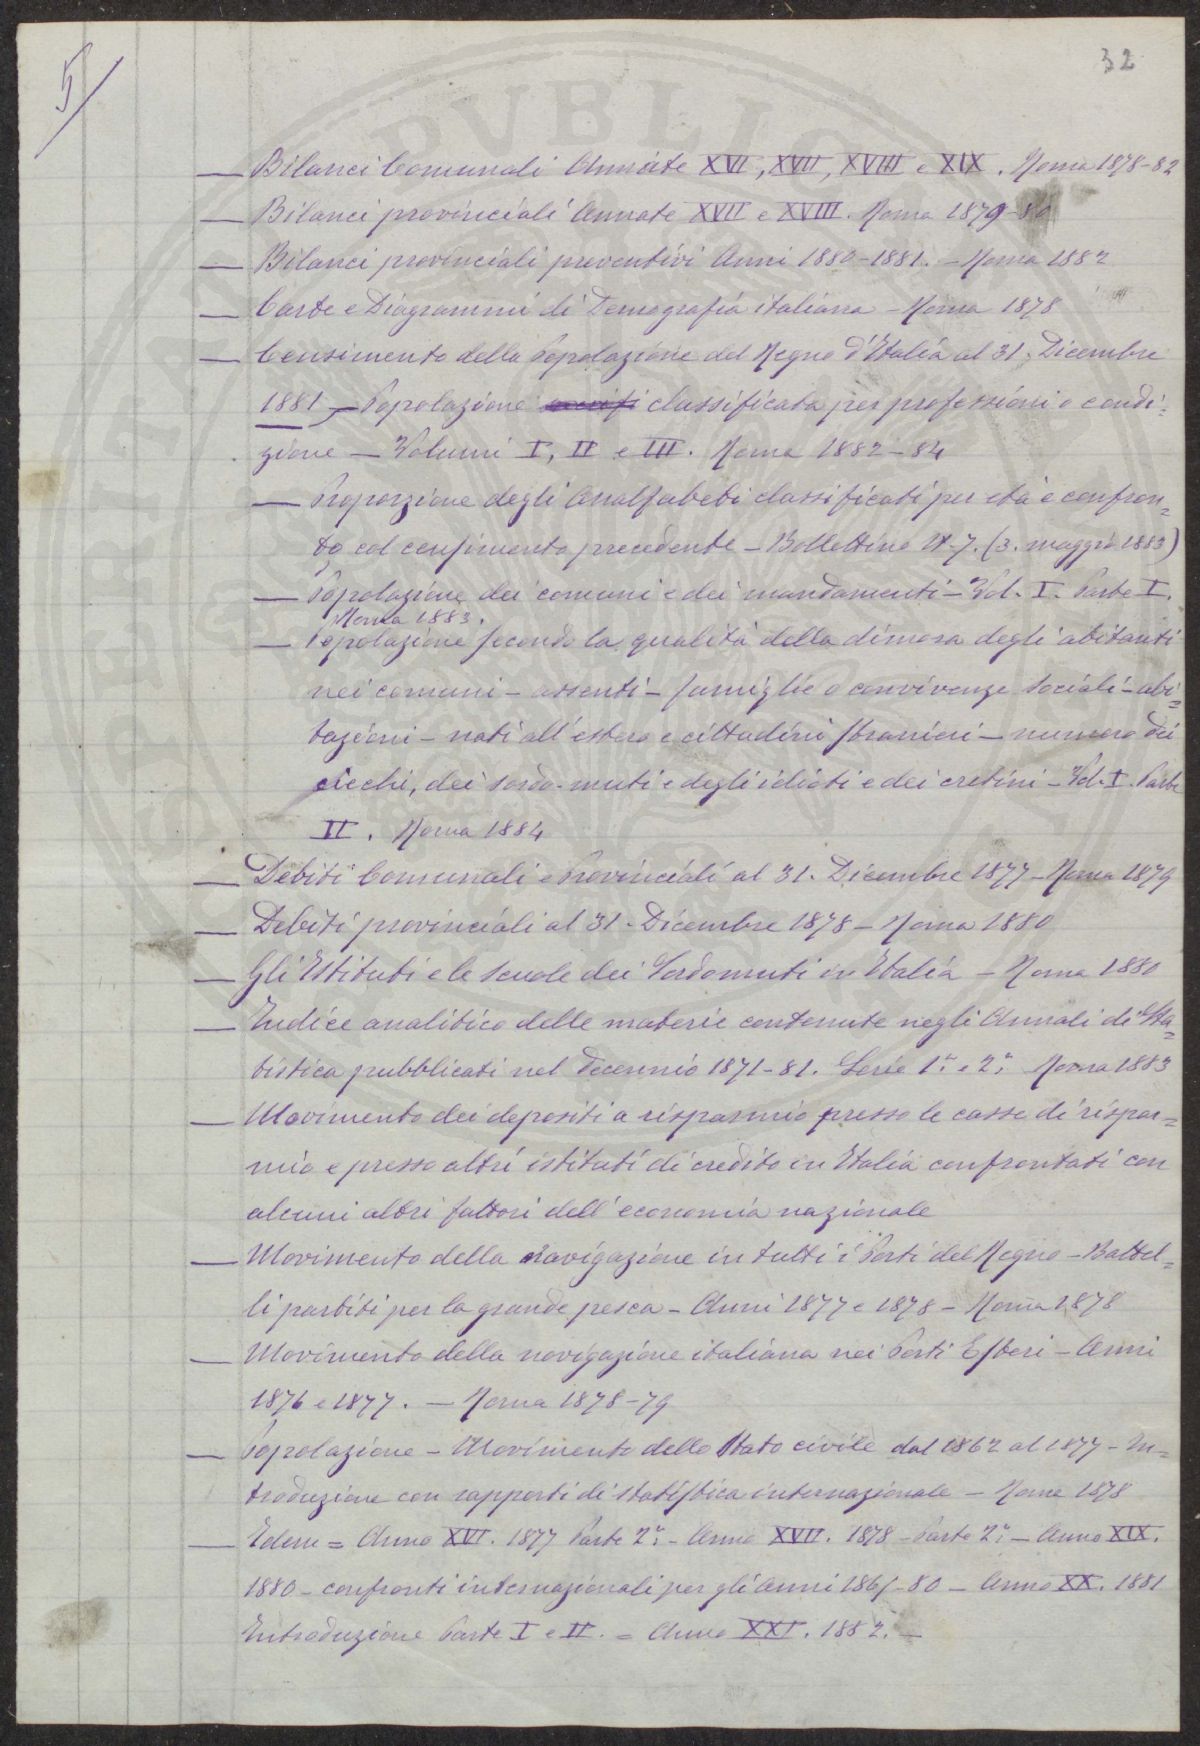 5/
32
— Bilanci Comunali Annate XVI, XVII, XVIII e XIX. Roma 1878-82
— Bilanci provinciali Annate XVII e XVIII. Roma 1879-80
— Bilanci provinciali preventivi Anni 1880-1881. — Roma 1882
— Carte e Diagrammi di Demografia italiana — Roma 1878
— Censimento della Popolazione del Regno d'Italia al 31. Dicembre
1881 — Popolazione classificata per professioni o condi-
zione — Volumi I, II e III. Roma 1882-84
— Proporzione degli Analfabeti classificati per età e confron=
to col censimento precedente — Bollettino N. 7. (3. maggio 1883)
— Popolazione dei comuni e dei mandamenti — Vol. I. Parte I.
Roma 1883.
— Popolazione secondo la qualità della dimora degli abitanti
nei comuni — assenti — famiglie o convivenze sociali — abi-
tazioni — nati all'estero e cittadini stranieri — numero dei
ciechi, dei sordo-muti e degli idioti e dei cretini — Vol. I. Parte
II. Roma 1884
— Debiti Comunali e Provinciali al 31. Dicembre 1877 — Roma 1879
— Debiti provinciali al 31. Dicembre 1878 — Roma 1880
— Gli Istituti e le Scuole dei Sordomuti in Italia — Roma 1880
— Indice analitico delle materie contenute negli Annali di Sta=
tistica pubblicati nel decennio 1871-81. Serie 1ª e 2ª Roma 1883
— Movimento dei depositi a risparmio presso le casse di rispar=
mio e presso altri istituti di credito in Italia confrontati con
alcuni altri fattori dell'economia nazionale
— Movimento della navigazione in tutti i Porti del Regno — Battel=
li partiti per la grande pesca — Anni 1877 e 1878 — Roma 1878
— Movimento della navigazione italiana nei Porti Esteri — Anni
1876 e 1877. — Roma 1878-79
— Popolazione — Movimento dello Stato civile dal 1862 al 1877 — In=
troduzione con rapporti di statistica internazionale — Roma 1878
— Idem = Anno XVI. 1877 Parte 2ª — Anno XVII. 1878 — Parte 2ª — Anno XIX.
1880 — confronti internazionali per gli anni 1865-80 — Anno XX. 1881
Introduzione Parte I e II. = Anno XXI. 1882. —